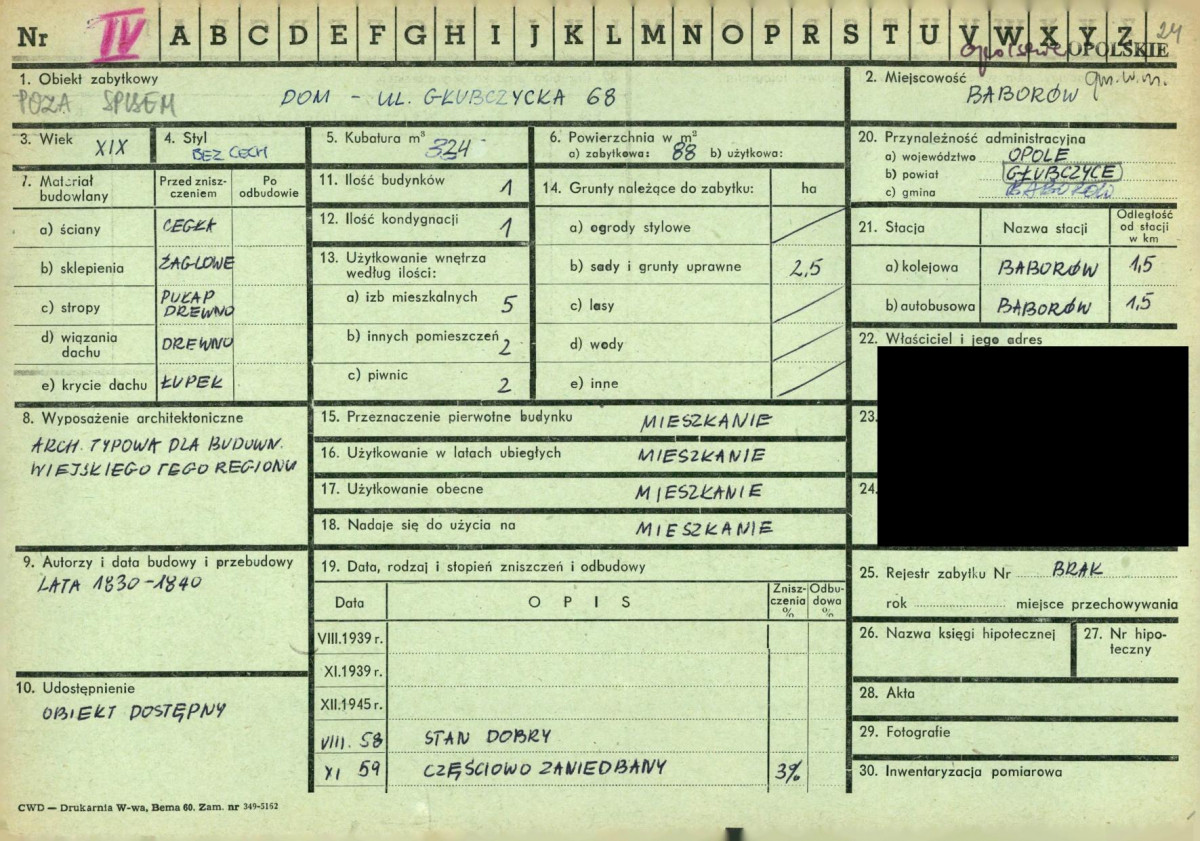 Nr IV A B C D E F G H I J K L M N O P R S T U V W X Y Z 24
opolskie OPOLSKIE
1. Obiekt zabytkowy
POZA SPISEM
DOM - UL. GŁUBCZYCKA 68
2. Miejscowość
BABORÓW gm.w.m.
3. Wiek XIX
4. Styl
BEZ CECH
5. Kubatura m³ 324
6. Powierzchnia w m²
a) zabytkowa: 88 b) użytkowa:
20. Przynależność administracyjna
a) województwo OPOLE
b) powiat GŁUBCZYCE
c) gmina BABORÓW
7. Materiał budowlany
Przed zniszczeniem
Po odbudowie
a) ściany CEGŁA
b) sklepienia ŻAGLOWE
c) stropy PUŁAP DREWNO
d) wiązania dachu DREWNO
e) krycie dachu ŁUPEK
11. Ilość budynków 1
12. Ilość kondygnacji 1
13. Użytkowanie wnętrza według ilości:
a) izb mieszkalnych 5
b) innych pomieszczeń 2
c) piwnic 2
14. Grunty należące do zabytku: ha
a) ogrody stylowe
b) sady i grunty uprawne 2,5
c) lasy
d) wody
e) inne
21. Stacja Nazwa stacji Odległość od stacji w km
a) kolejowa BABORÓW 1,5
b) autobusowa BABORÓW 1,5
22. Właściciel i jego adres
23.
24.
8. Wyposażenie architektoniczne
ARCH. TYPOWA DLA BUDOWN.
WIEJSKIEGO TEGO REGIONU
15. Przeznaczenie pierwotne budynku MIESZKANIE
16. Użytkowanie w latach ubiegłych MIESZKANIE
17. Użytkowanie obecne MIESZKANIE
18. Nadaje się do użycia na MIESZKANIE
9. Autorzy i data budowy i przebudowy
LATA 1830-1840
19. Data, rodzaj i stopień zniszczeń i odbudowy
Data OPIS Zniszczenia % Odbudowa %
VIII.1939 r.
XI.1939 r.
XII.1945 r.
VIII. 58 STAN DOBRY
XI 59 CZĘŚCIOWO ZANIEDBANY 3%
25. Rejestr zabytku Nr BRAK
rok miejsce przechowywania
26. Nazwa księgi hipotecznej
27. Nr hipoteczny
28. Akta
29. Fotografie
30. Inwentaryzacja pomiarowa
10. Udostępnienie
OBIEKT DOSTĘPNY
CWD — Drukarnia W-wa, Bema 60. Zam. nr 349-5162